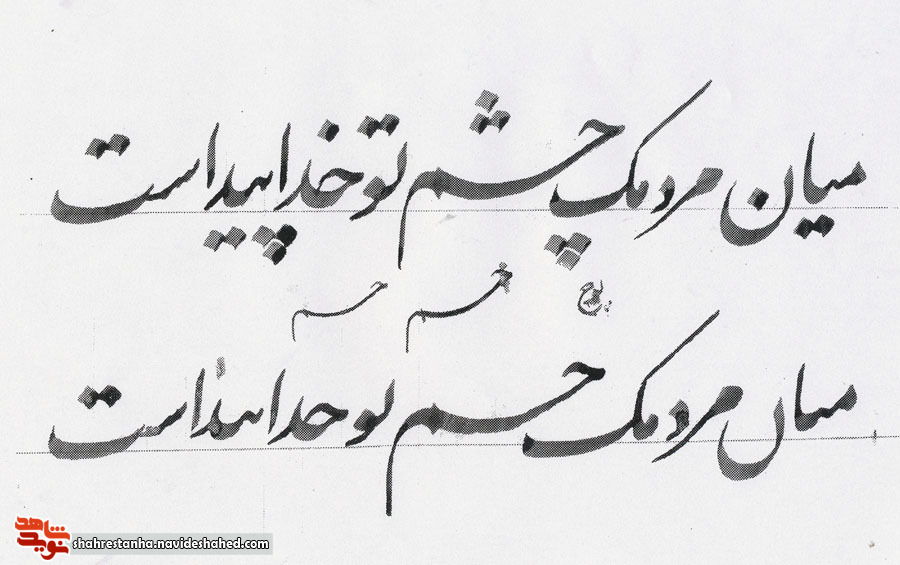 میان مردمک چشم تو خدا پیداست
حسم حسم
میان مردمک چشم تو خدا پیداست
نوید شاهد
shahrestanha.navideshahed.com